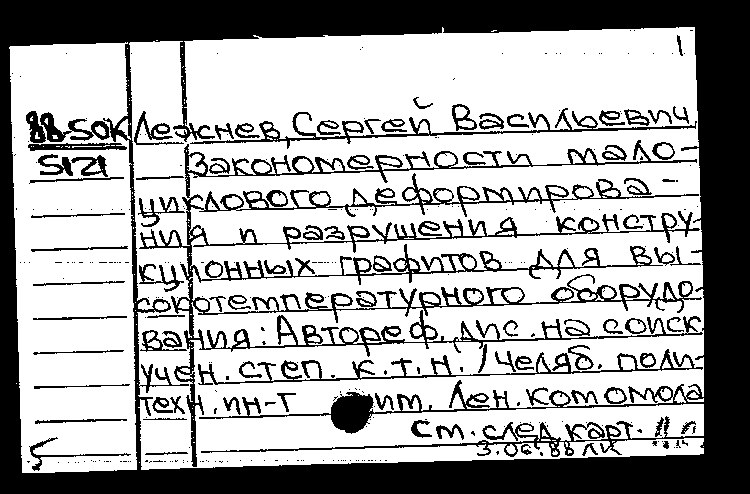 1
88-50К Лежнев, Сергей Васильевич
5121 Закономерности мало-
циклового деформирова-
ния и разрушения констру-
кционных графитов для вы-
сокотемпературного оборудо-
вания: Автореф. дис. на соиск
учен. степ. к.т.н. / Челяб. поли-
техн. ин-т им. Лен. комсомола
см. след. карт.
5 3.06.88